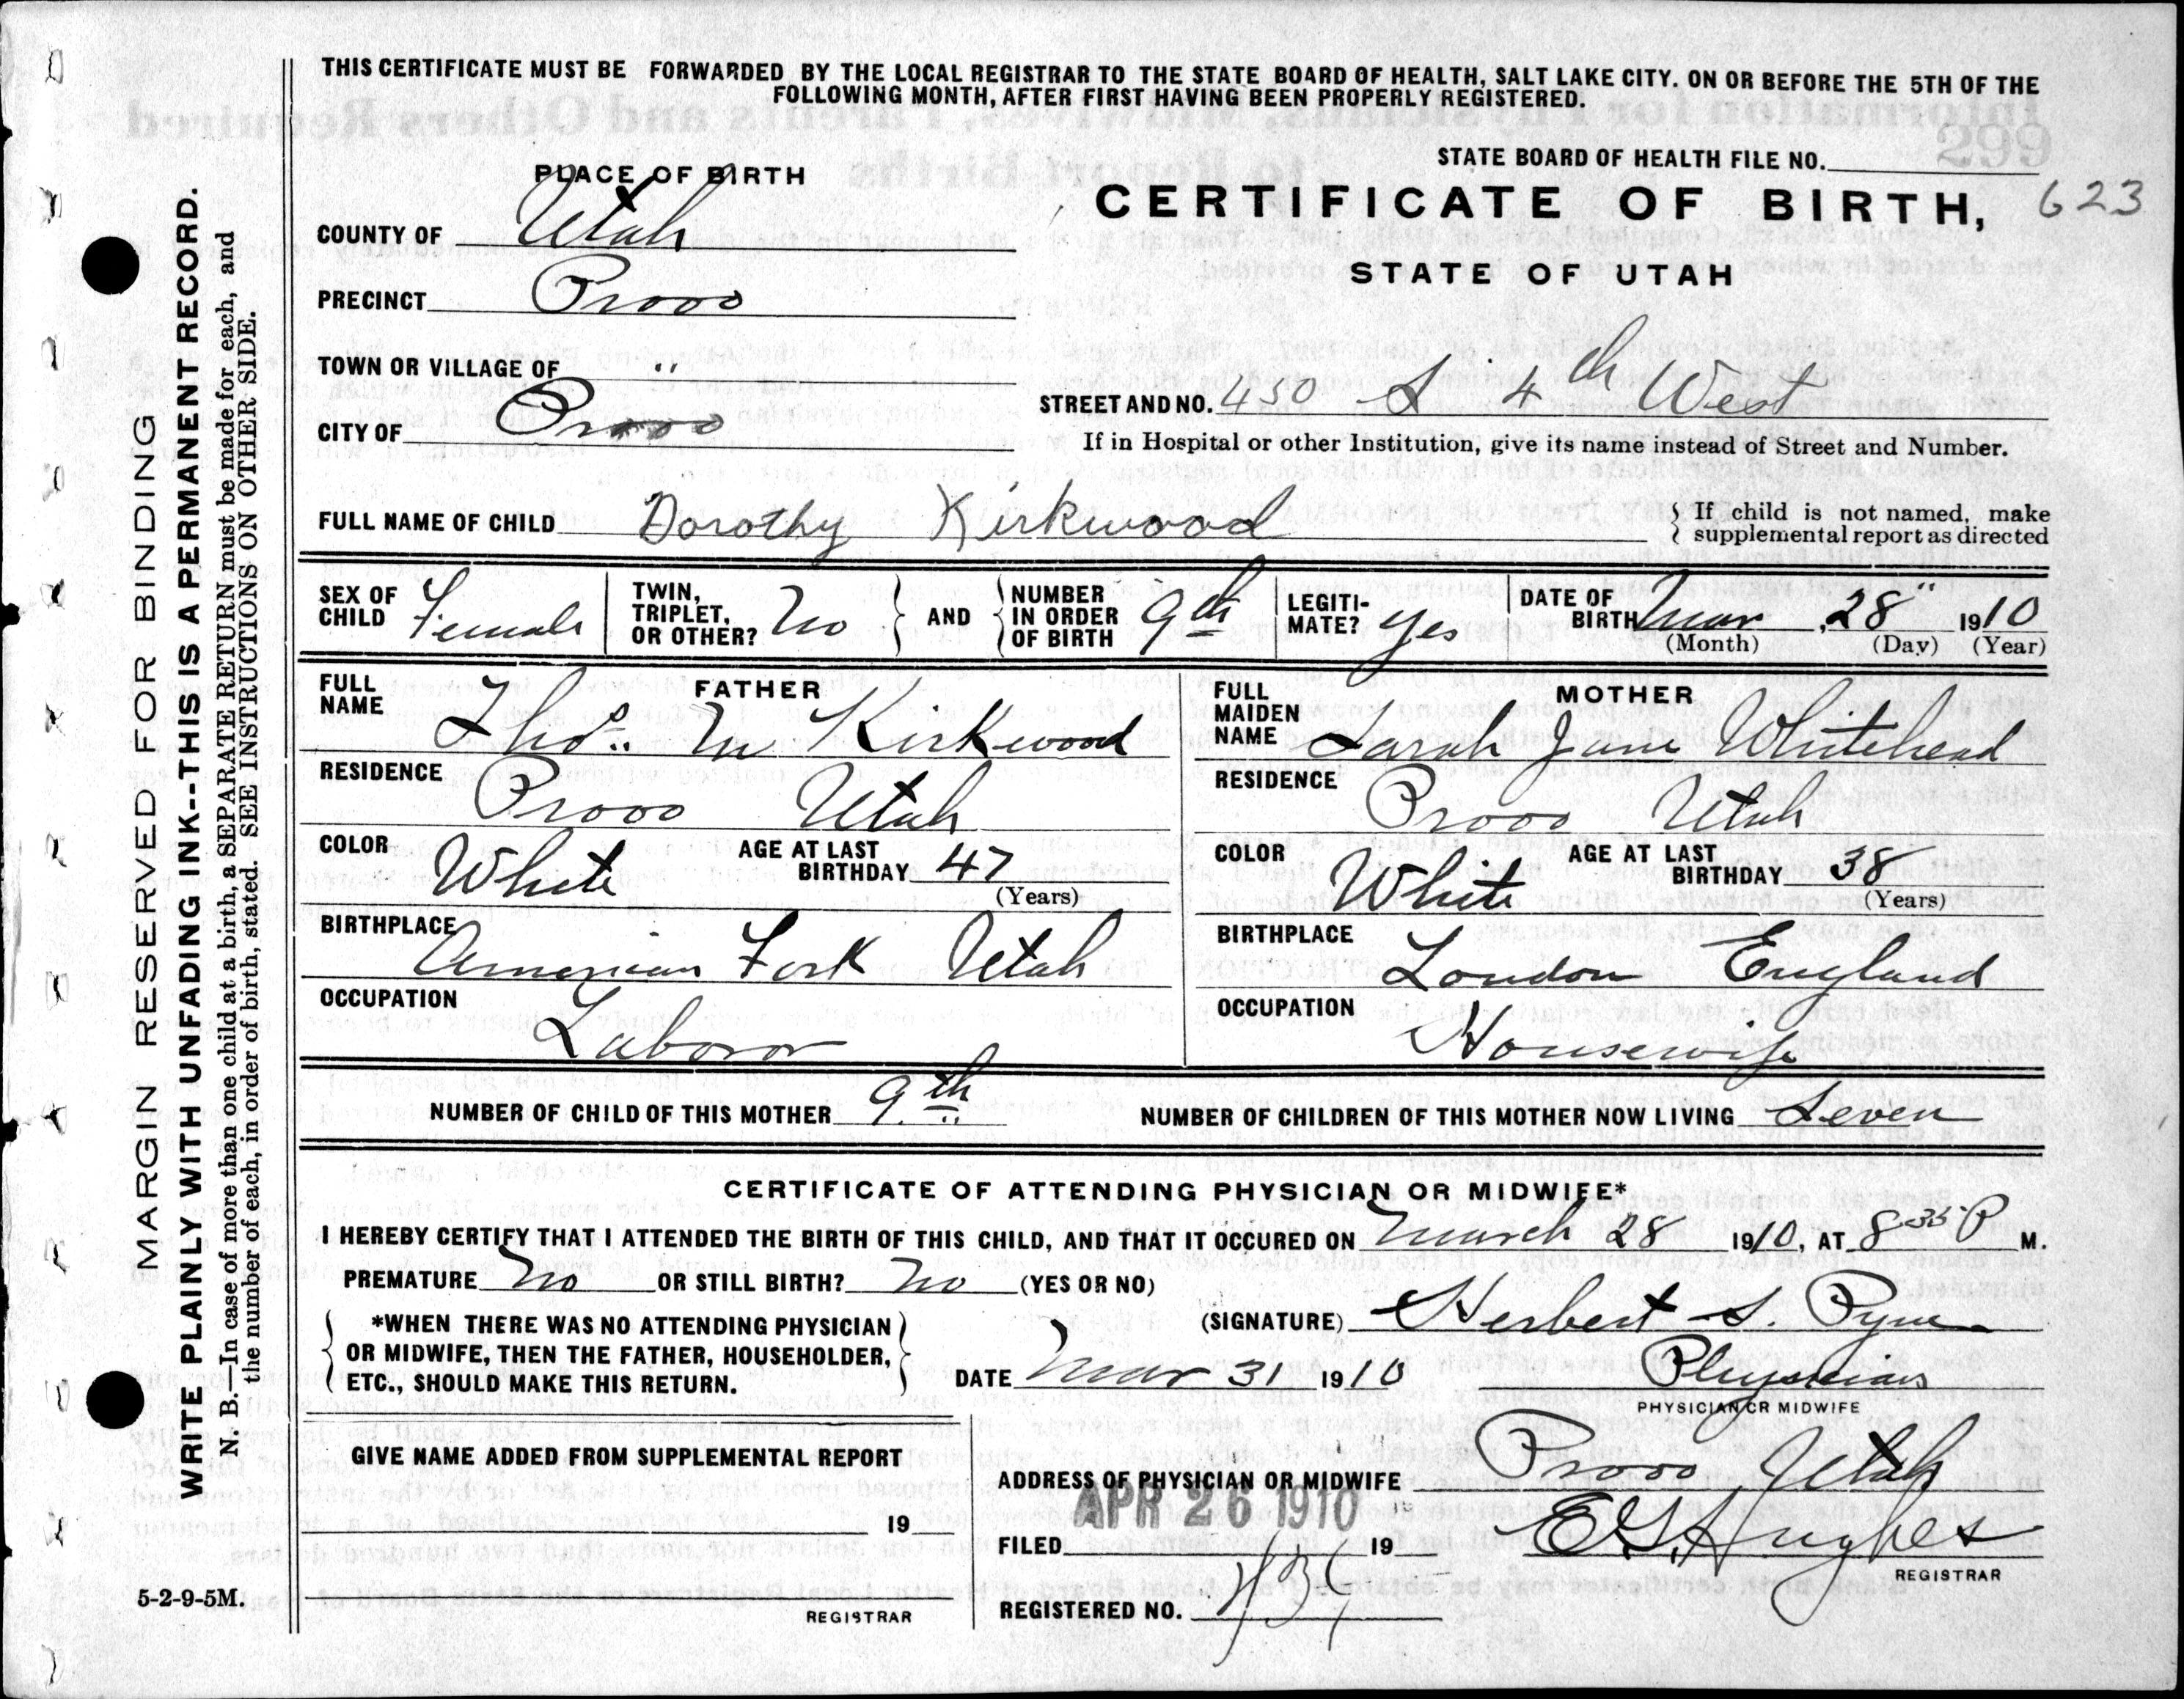 THIS CERTIFICATE MUST BE FORWARDED BY THE LOCAL REGISTRAR TO THE STATE BOARD OF HEALTH, SALT LAKE CITY. ON OR BEFORE THE 5TH OF THE
FOLLOWING MONTH, AFTER FIRST HAVING BEEN PROPERLY REGISTERED.
STATE BOARD OF HEALTH FILE NO.
299
PLACE OF BIRTH
CERTIFICATE OF BIRTH, 623
STATE OF UTAH
COUNTY OF Utah
PRECINCT Provo
TOWN OR VILLAGE OF "
CITY OF Provo
STREET AND NO. 430 S 4th West
If in Hospital or other Institution, give its name instead of Street and Number.
FULL NAME OF CHILD Dorothy Kirkwood
{ If child is not named, make
supplemental report as directed
SEX OF CHILD Female
TWIN, TRIPLET, OR OTHER? No } AND { NUMBER IN ORDER OF BIRTH 9th
LEGITI-MATE? Yes
DATE OF BIRTH Mar, 28" 1910
(Month) (Day) (Year)
FATHER
FULL NAME Thos. M Kirkwood
RESIDENCE Provo Utah
COLOR White AGE AT LAST BIRTHDAY 47
(Years)
BIRTHPLACE American Fork Utah
OCCUPATION Laboror
MOTHER
FULL MAIDEN NAME Sarah Jane Whitehead
RESIDENCE Provo Utah
COLOR White AGE AT LAST BIRTHDAY 38
(Years)
BIRTHPLACE London England
OCCUPATION Housewife
NUMBER OF CHILD OF THIS MOTHER 9th NUMBER OF CHILDREN OF THIS MOTHER NOW LIVING Seven
CERTIFICATE OF ATTENDING PHYSICIAN OR MIDWIFE*
I HEREBY CERTIFY THAT I ATTENDED THE BIRTH OF THIS CHILD, AND THAT IT OCCURED ON March 28 1910, AT 8 35 P M.
PREMATURE No OR STILL BIRTH? No (YES OR NO)
{ *WHEN THERE WAS NO ATTENDING PHYSICIAN
OR MIDWIFE, THEN THE FATHER, HOUSEHOLDER,
ETC., SHOULD MAKE THIS RETURN. }
(SIGNATURE) Herbert S. Pyne
DATE Mar 31 1910
Physician
PHYSICIAN OR MIDWIFE
GIVE NAME ADDED FROM SUPPLEMENTAL REPORT
19
REGISTRAR
ADDRESS OF PHYSICIAN OR MIDWIFE Provo Utah
APR 26 1910
FILED 19
E G Hughes
REGISTRAR
REGISTERED NO.
5-2-9-5M.
MARGIN RESERVED FOR BINDING
WRITE PLAINLY WITH UNFADING INK--THIS IS A PERMANENT RECORD.
N. B.--In case of more than one child at a birth, a SEPARATE RETURN must be made for each, and
the number of each, in order of birth, stated. SEE INSTRUCTIONS ON OTHER SIDE.